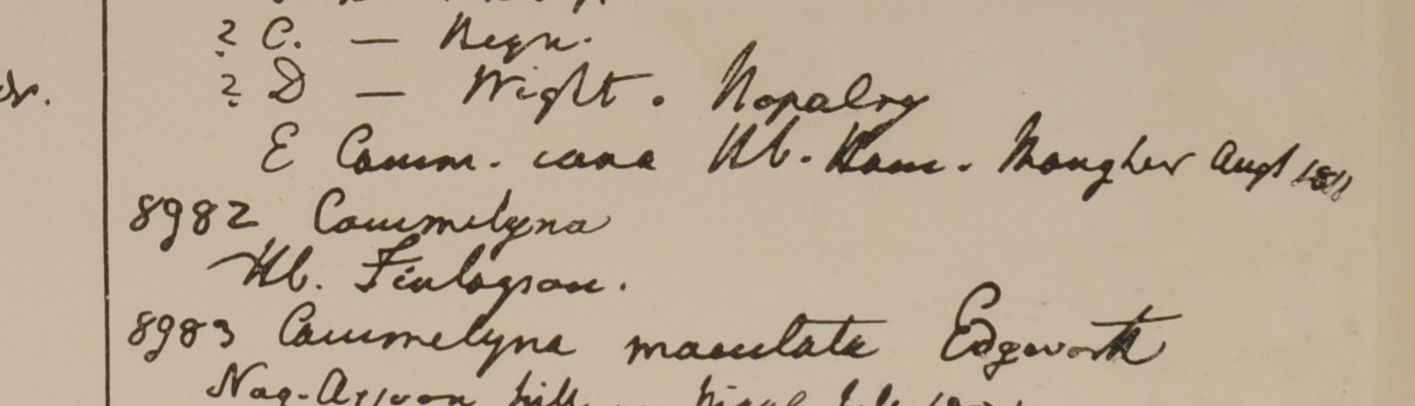 ? C. — Hegn.
? D — Wight. Nopalry
E Comm. cana Hb. Ham. Mongher Augt 1811
8982 Commelyna
Hb. Finlayson.
8983 Commelyna maculata Edgworth
Nag-Arjoon hill